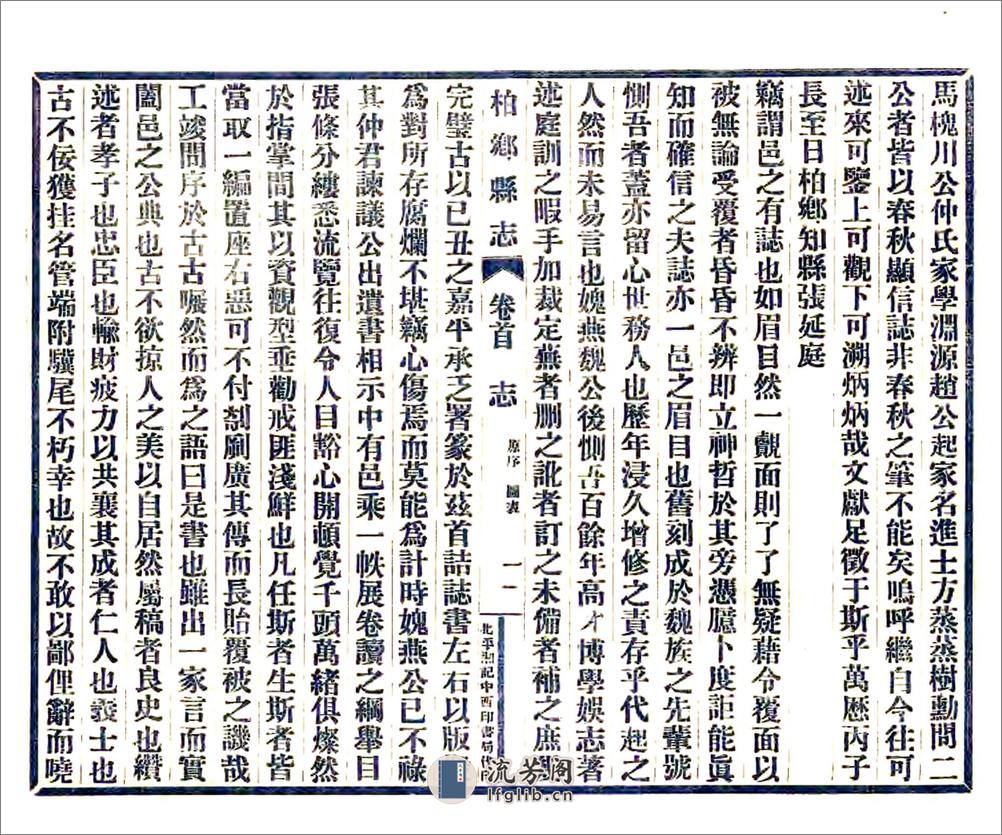 馬槐川公仲氏家學淵源趙公起家名進士方蒸蒸樹勳問二
公者皆以春秋顯信誌非春秋之筆不能矣嗚呼繼自今往可
述來可鑒上可觀下可溯炳炳哉文獻足徵于斯乎萬歷丙子
長至日柏鄉知縣張延庭
竊謂邑之有誌也如眉目然一覿面則了了無疑藉令覆面以
被無論受覆者昏昏不辨即立神哲於其旁憑臆卜度詎能眞
知而確信之夫誌亦一邑之眉目也舊刻成於魏族之先輩號
惻吾者蓋亦留心世務人也歷年浸久增修之責存乎代起之
人然而未易言也媿燕魏公後惻吾百餘年高才博學娛志著
述庭訓之暇手加裁定蕪者刪之訛者訂之未備者補之庶
柏鄉縣志
卷首
志
原序 圖表
一一
北平翔記中西印書局代
完璧古以已丑之嘉平承乏署篆於茲首詰誌書左右以版籍
爲對所存腐爛不堪竊心傷焉而莫能爲計時媿燕公已不祿
其仲君諫議公出遺書相示中有邑乘一帙展卷讀之綱舉目
張條分縷悉流覽往復令人目豁心開頓覺千頭萬緒俱燦然
於指掌間其以資觀型垂勸戒匪淺鮮也凡任斯者生斯者皆
當取一編置座右惡可不付剞劂廣其傳而長貽覆被之譏哉
工竣問序於古古囅然而爲之語曰是書也雖出一家言而實
闔邑之公典也古不欲掠人之美以自居然屬稿者良史也纘
述者孝子也忠臣也輸財疲力以共襄其成者仁人也義士也
古不佞獲挂名管端附驥尾不朽幸也故不敢以鄙俚辭而曉
流芳阁
lfglib.cn